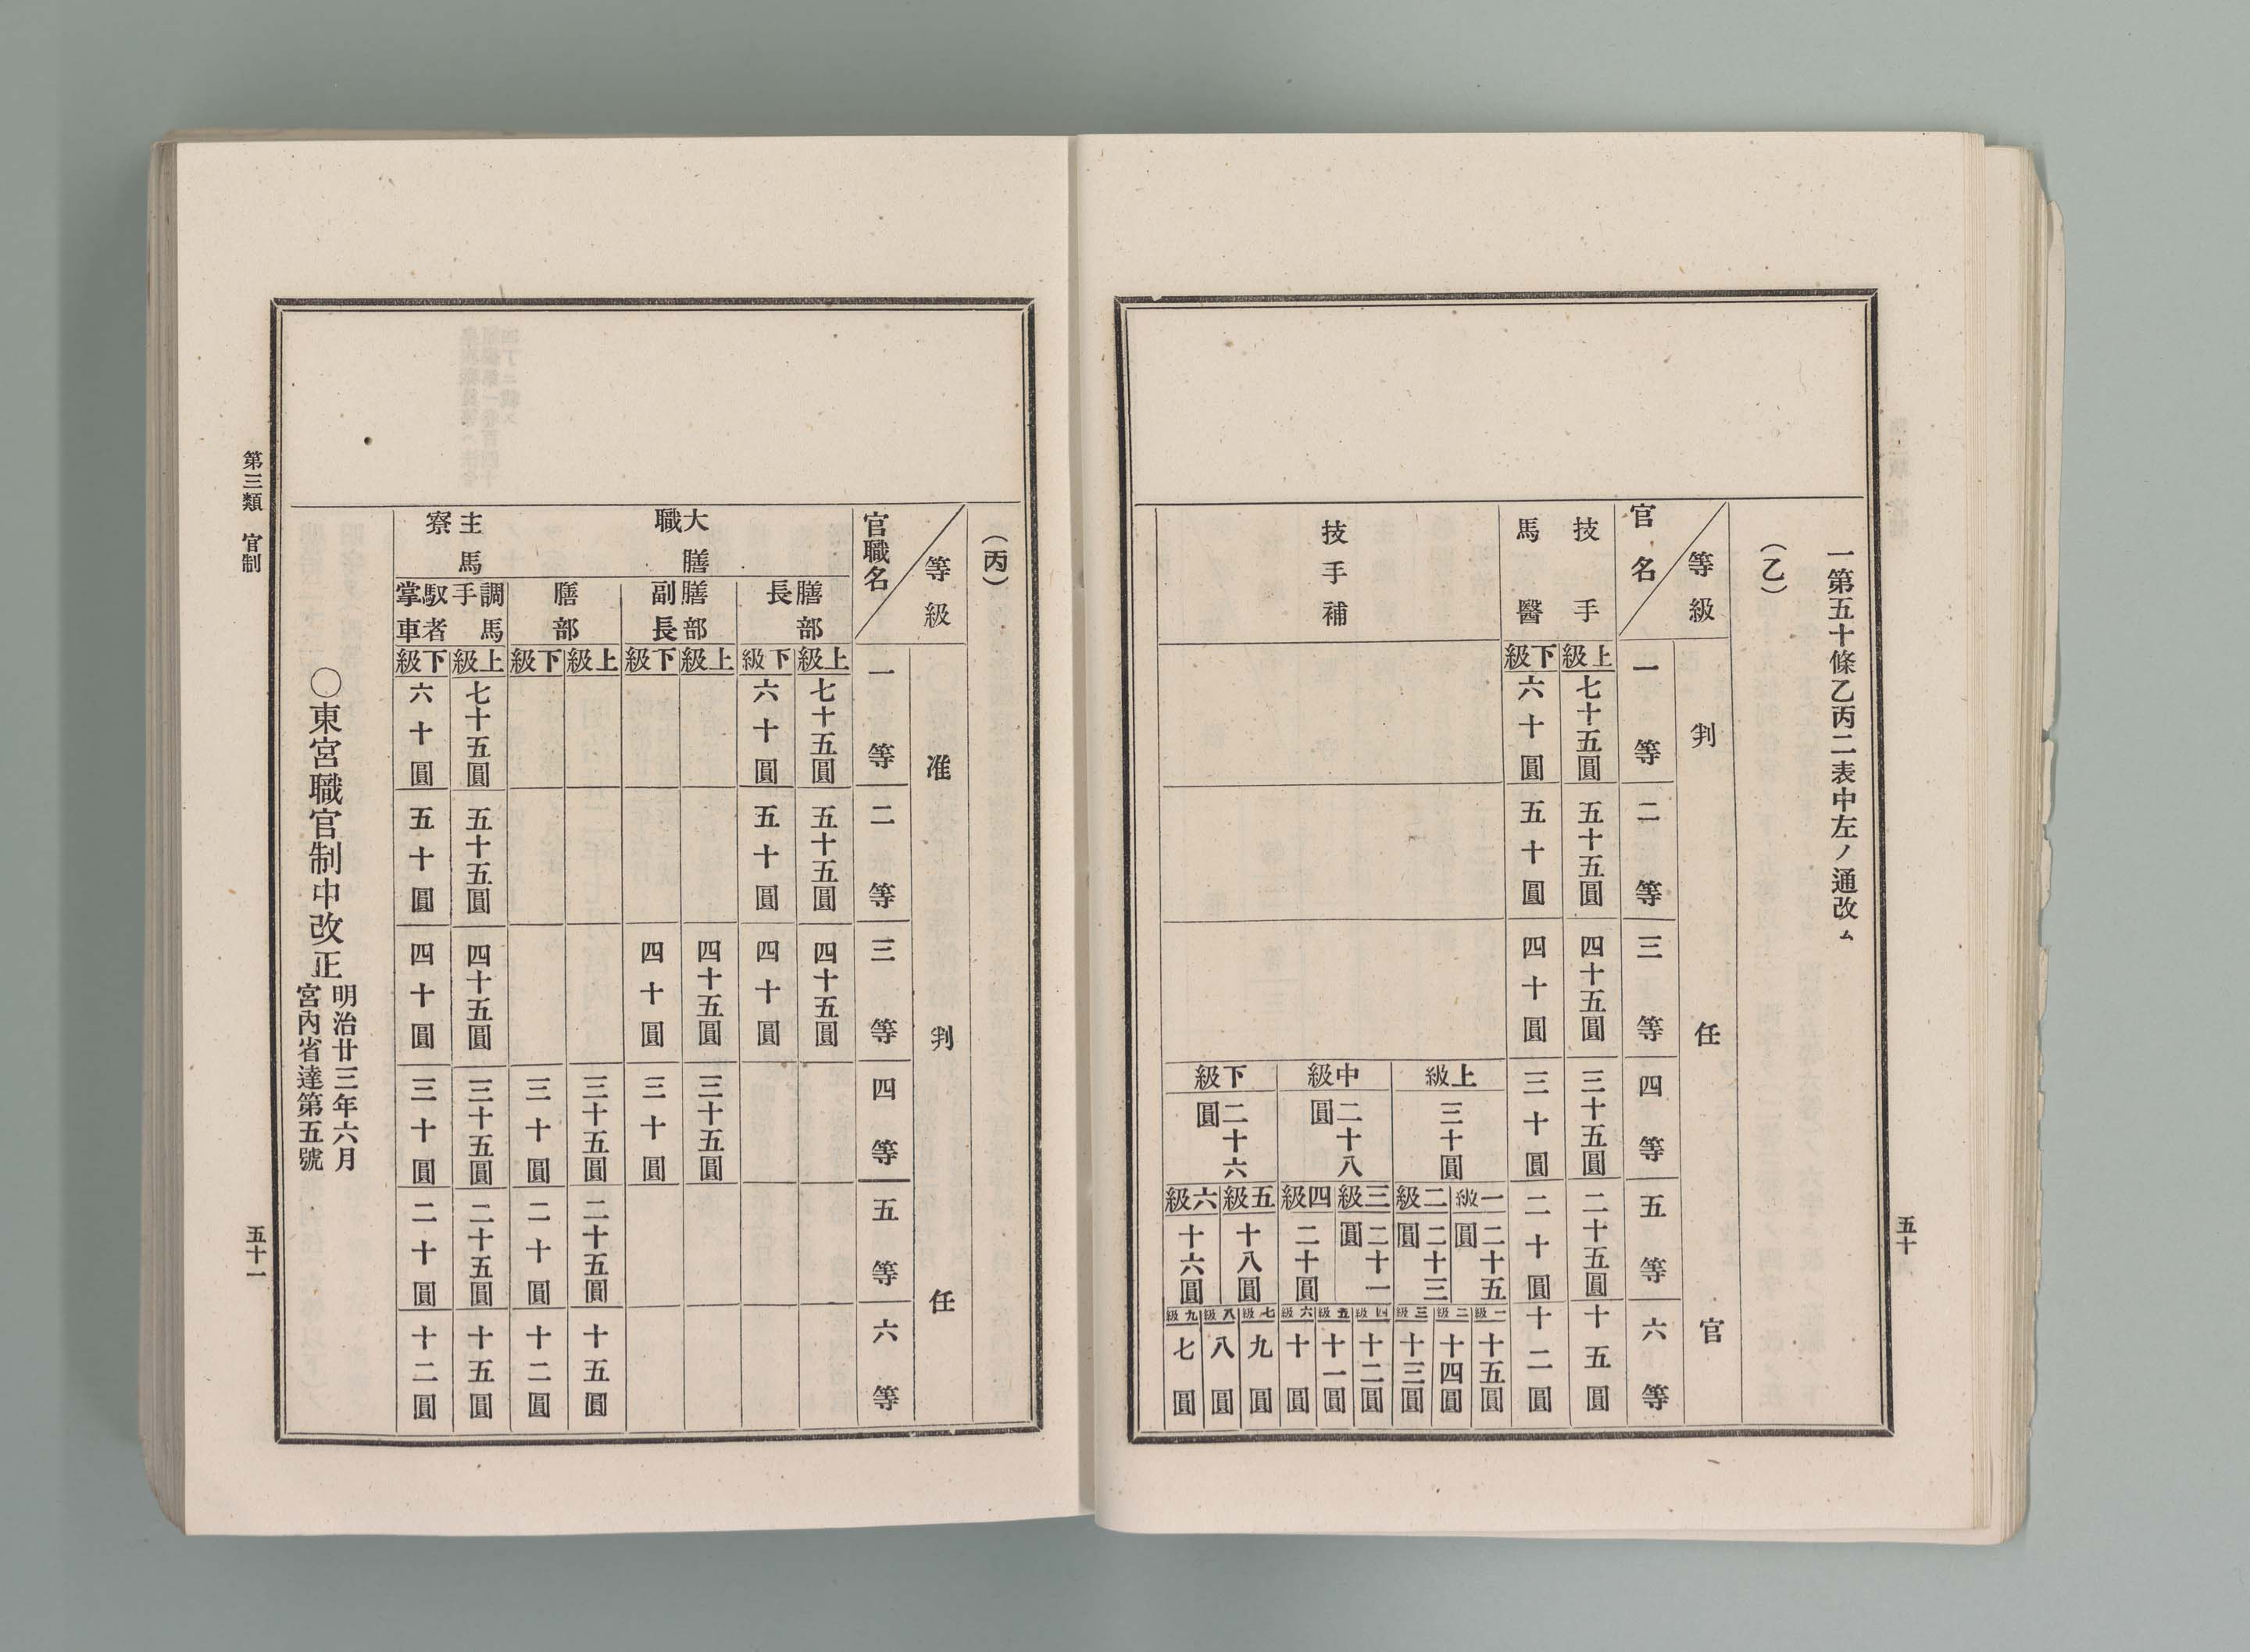 一第五十條乙丙二表中左ノ通改ム
(乙)
等級
官名
判任官
一等
二等
三等
四等
五等
六等
技手
馬醫
上級
七十五圓
五十五圓
四十五圓
三十五圓
二十五圓
十五圓
下級
六十圓
五十圓
四十圓
三十圓
二十圓
十二圓
技手補
上級
三十圓
中級
二十八圓
下級
二十六圓
一級
二十五圓
二級
二十三圓
三級
二十一圓
四級
二十圓
五級
十八圓
六級
十六圓
一級
十五圓
二級
十四圓
三級
十三圓
四級
十二圓
五級
十一圓
六級
十圓
七級
九圓
八級
八圓
九級
七圓
五十
(丙)
等級
官職名
准判任
一等
二等
三等
四等
五等
六等
大膳職
膳部長
上級
七十五圓
五十五圓
四十五圓
下級
六十圓
五十圓
四十圓
膳部副長
上級
四十五圓
三十五圓
下級
四十圓
三十圓
膳部
上級
三十五圓
二十五圓
十五圓
下級
三十圓
二十圓
十二圓
主馬寮
調馬手
馭者
車掌
上級
七十五圓
五十五圓
四十五圓
三十五圓
二十五圓
十五圓
下級
六十圓
五十圓
四十圓
三十圓
二十圓
十二圓
○東宮職官制中改正
明治廿三年六月
宮內省達第五號
第三類 官制
五十一